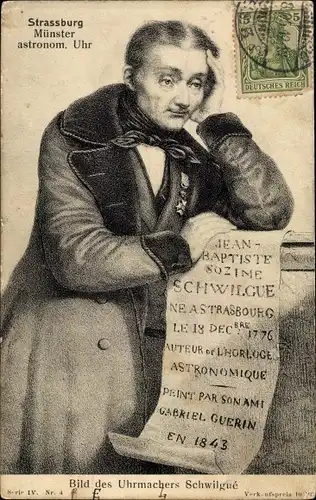 Strassburg
Münster
astronom. Uhr
5
5
DEUTSCHES REICH
JEAN-
BAPTISTE
SOZIME
SCHWILGUE
NE A STRASBOURG
LE 18 DECBRE 1776
AUTEUR DE L'HORLOGE
ASTRONOMIQUE
PEINT PAR SON AMI
GABRIEL GUERIN
EN 1843
Bild des Uhrmachers Schwilgué
Serie IV. Nr. 4
Verkaufspreis 10